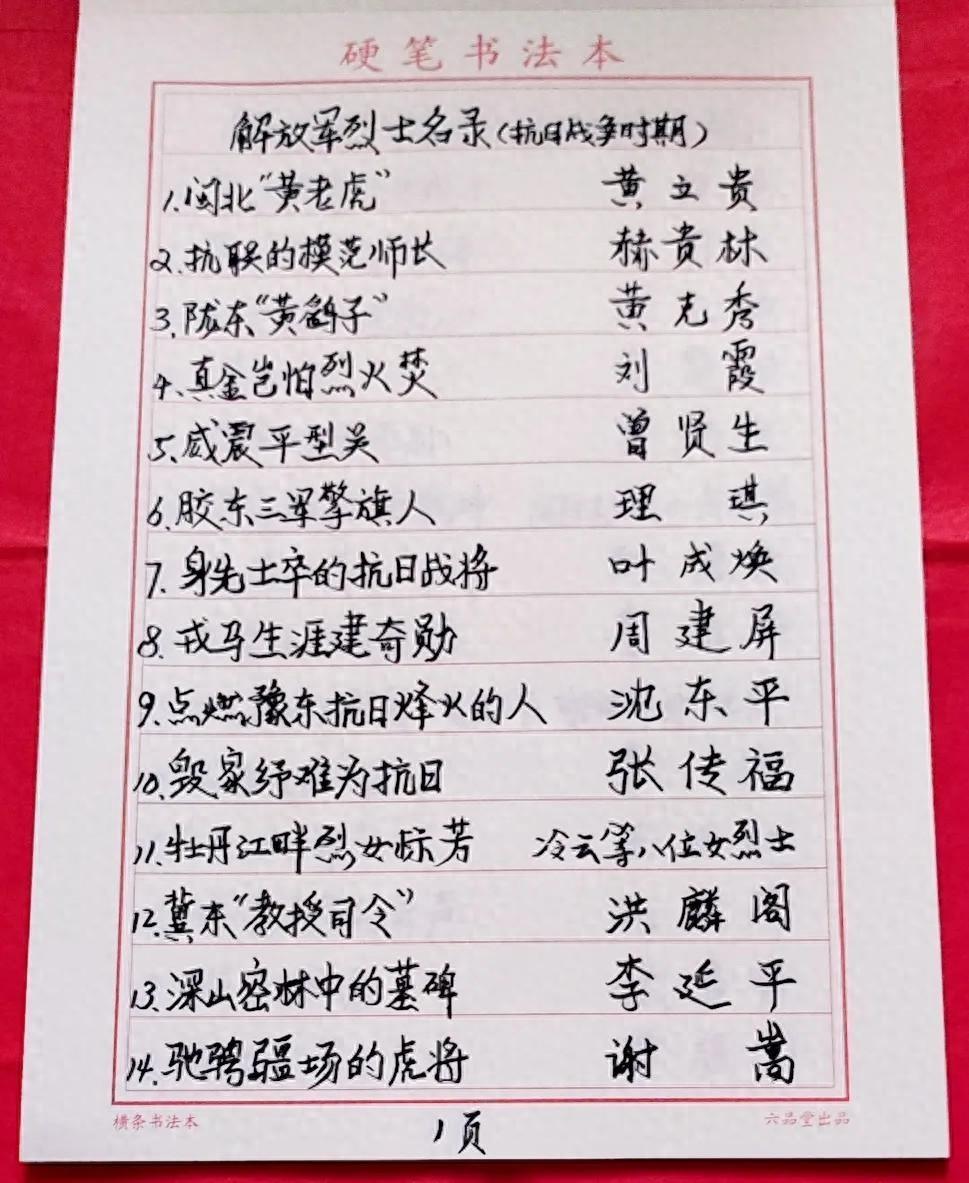 硬笔书法本
解放军烈士名录(抗日战争时期)
1.闽北“黄老虎” 黄立贵
2.抗联的模范师长 赫贵林
3.陇东“黄鹞子” 黄克秀
4.真金岂怕烈火焚 刘霞
5.威震平型关 曾贤生
6.胶东三军擎旗人 理琪
7.身先士卒的抗日战将 叶成焕
8.戎马生涯建奇勋 周建屏
9.点燃豫东抗日烽火的人 沈东平
10.毁家纾难为抗日 张传福
11.牡丹江畔烈女标芳 冷云等八位女烈士
12.冀东“教授司令” 洪麟阁
13.深山密林中的墓碑 李延平
14.驰骋疆场的虎将 谢嵩
横条书法本 六品堂出品
1页